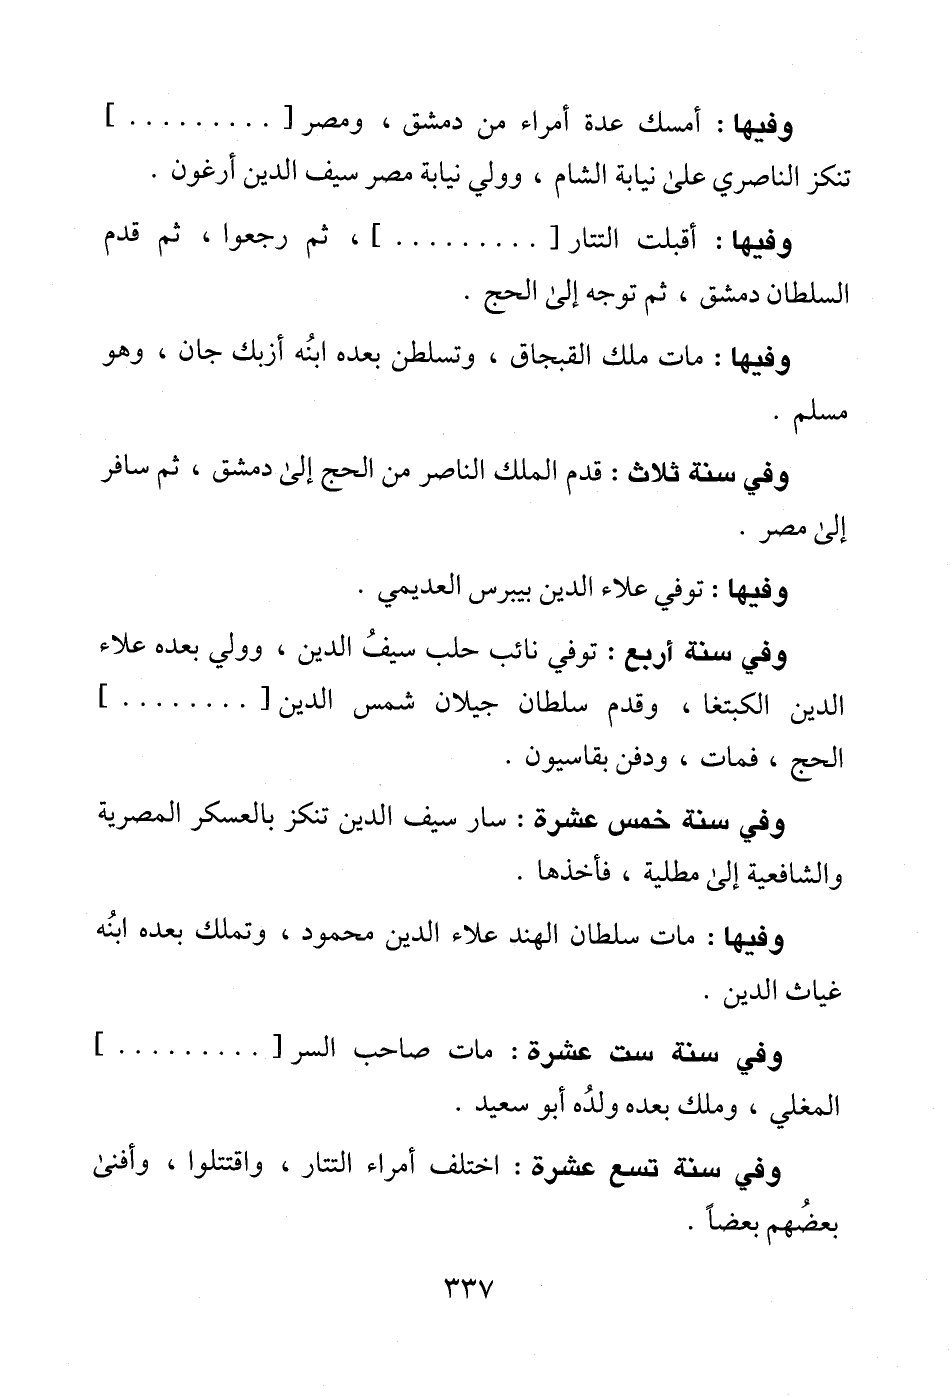 وفيها : أمسك عدة أمراء من دمشق ، ومصر [ . . . . . . . . . ]
تنكز الناصري علىٰ نيابة الشام ، وولي نيابة مصر سيف الدين أرغون .
وفيها : أقبلت التتار [ . . . . . . . . . ] ، ثم رجعوا ، ثم قدم
السلطان دمشق ، ثم توجه إلىٰ الحج .
وفيها : مات ملك القبجاق ، وتسلطن بعده ابنُه أزبك جان ، وهو
مسلم .
وفي سنة ثلاث : قدم الملك الناصر من الحج إلىٰ دمشق ، ثم سافر
إلىٰ مصر .
وفيها : توفي علاء الدين بيبرس العديمي .
وفي سنة أربع : توفي نائب حلب سيفُ الدين ، وولي بعده علاء
الدين الكبتغا ، وقدم سلطان جيلان شمس الدين [ . . . . . . . . ]
الحج ، فمات ، ودفن بقاسيون .
وفي سنة خمس عشرة : سار سيف الدين تنكز بالعسكر المصرية
والشافعية إلىٰ مطلية ، فأخذها .
وفيها : مات سلطان الهند علاء الدين محمود ، وتملك بعده ابنُه
غياث الدين .
وفي سنة ست عشرة : مات صاحب السر [ . . . . . . . . . ]
المغلي ، وملك بعده ولدُه أبو سعيد .
وفي سنة تسع عشرة : اختلف أمراء التتار ، واقتتلوا ، وأفنىٰ
بعضُهم بعضاً .
٣٣٧